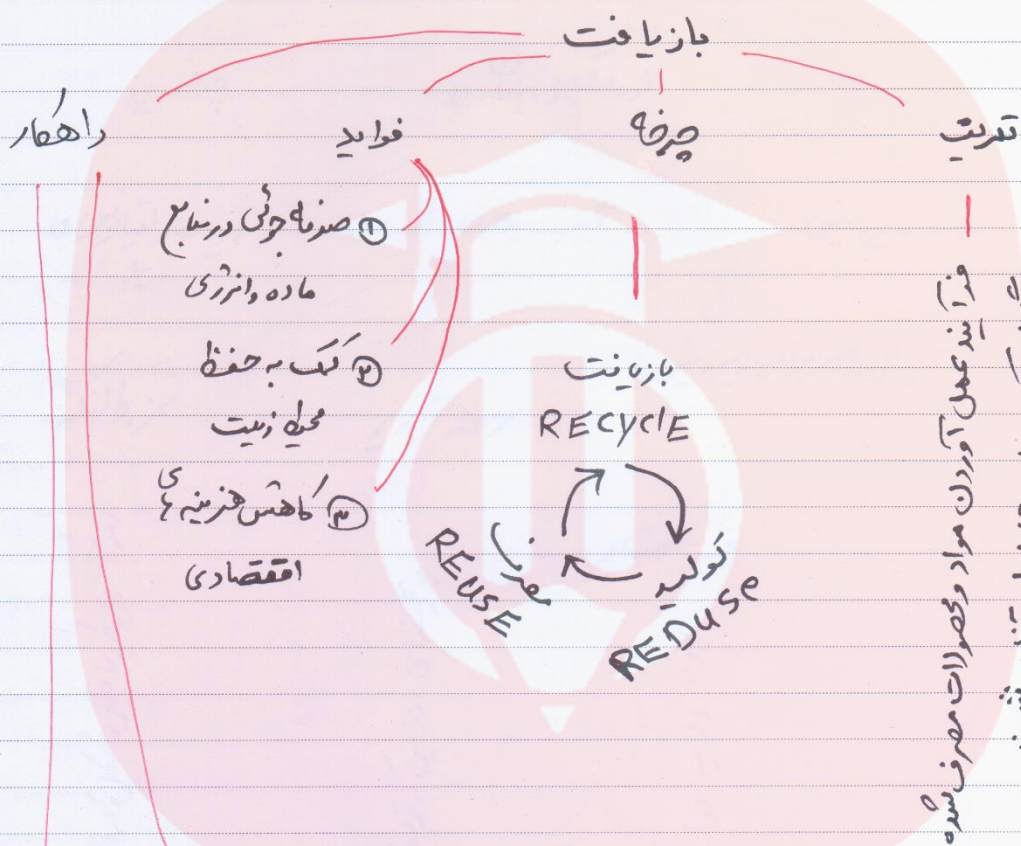 بازیافت
تعریف
چرخه
فواید
راهکار
فرآیند عمل آوردن مواد و محصولات مصرف شده
بازیافت
RECYClE
تولید
REDUSe
مصرف
REUSE
① صرفه جوئی در منابع
ماده و انرژی
② کمک به حفظ
محیط زیست
③ کاهش هزینه های
اقتصادی